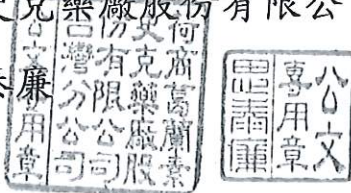 克藥廠股份有限公
廉
荷商葛蘭素
史克藥廠股
份有限公司
台灣分公司
公文專用章
公文
專用章